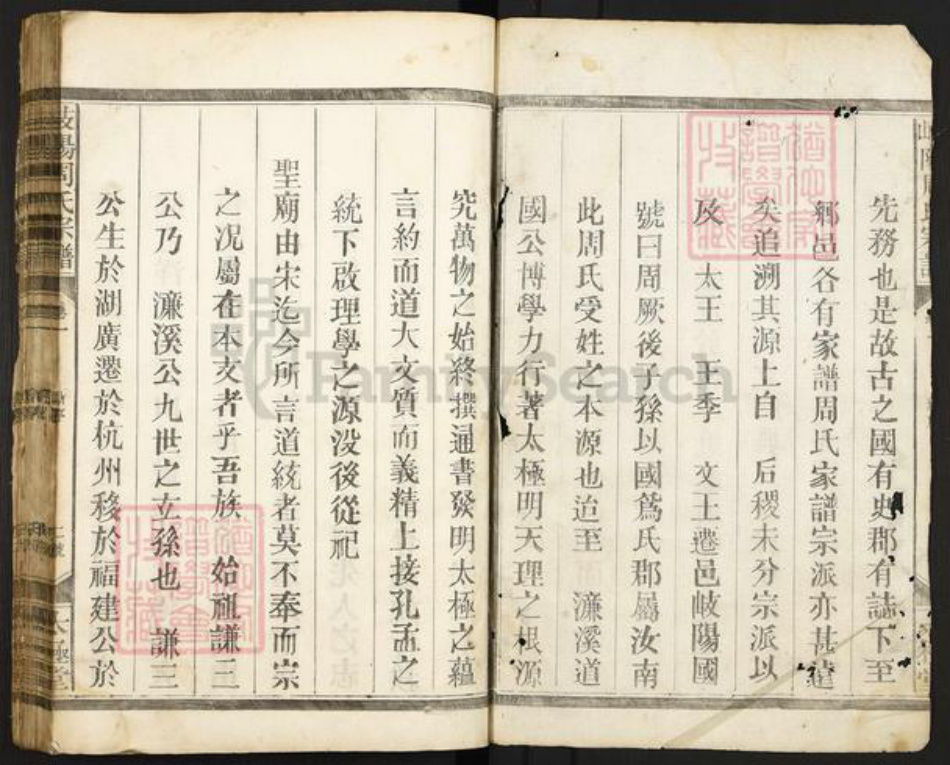 先務也是故古之國有史郡有誌下至
鄉邑各有家譜周氏家譜宗派亦甚遠
矣追溯其源上自 后稷未分宗派以
及 太王 王季 文王遷邑岐陽國
號曰周厥後子孫以國爲氏郡屬汝南
此周氏受姓之本源也迨至 濂溪道
國公博學力行著太極明天理之根源
究萬物之始終撰通書發明太極之蘊
言約而道大文質而義精上接孔孟之
統下啟理學之源没後從祀
聖廟由宋迄今所言道統者莫不奉而宗
之况屬在本支者乎吾族 始祖謙三
公乃 濂溪公九世之玄孫也 謙三
公生於湖廣遷於杭州移於福建公於
岐陽周氏宗譜
卷一
太極堂
FamilySearch